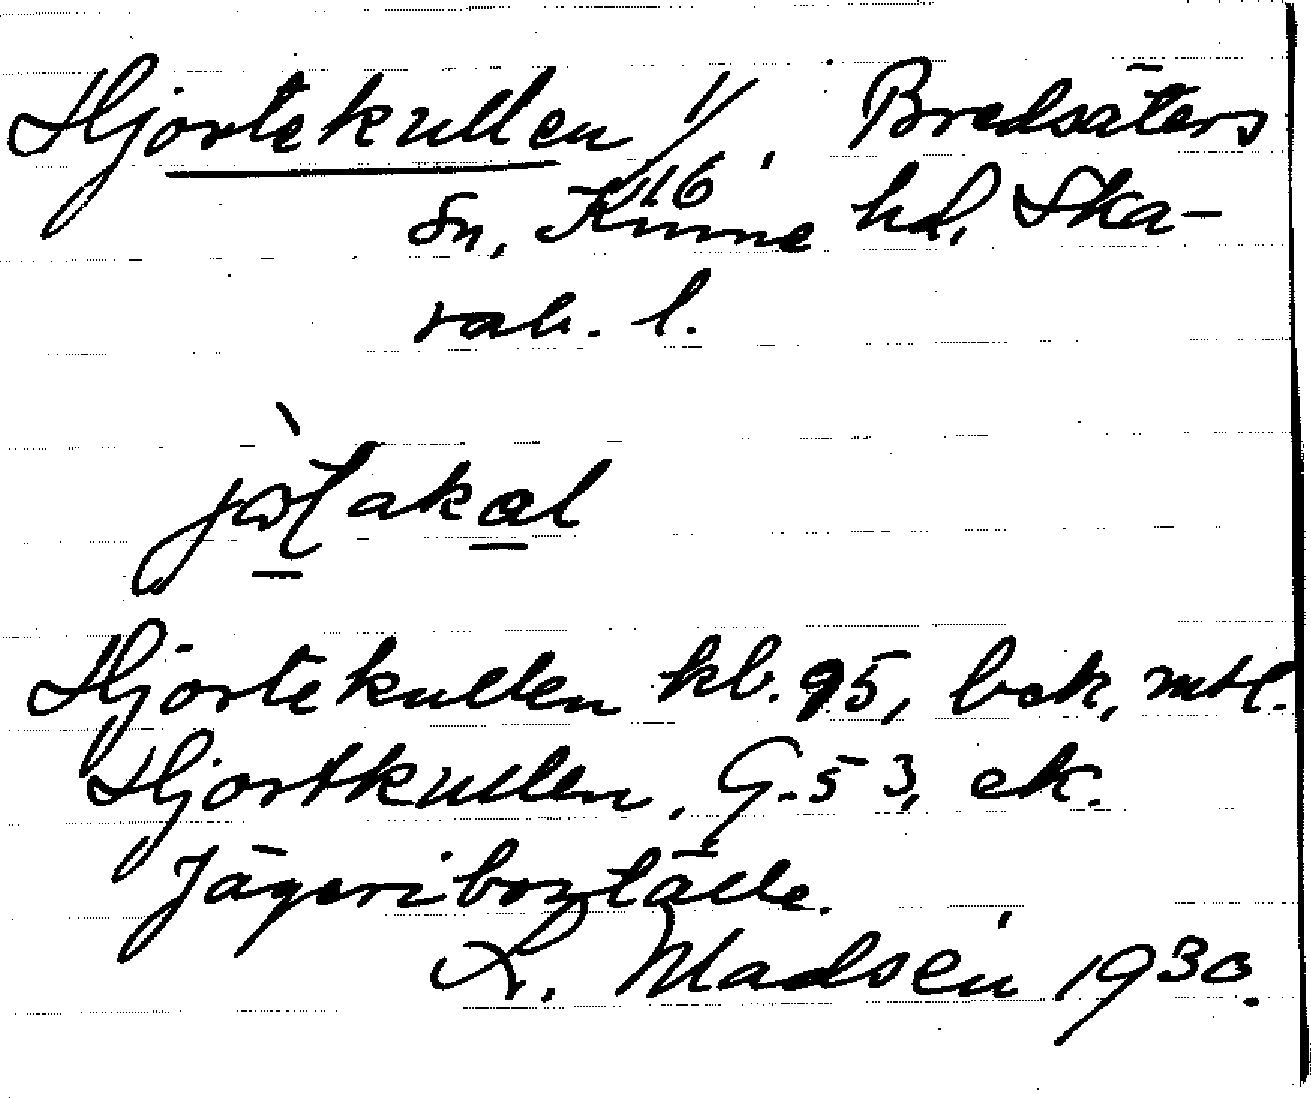 Hjortekullen 1/16, Bredsäters
sn, Kinne hd, Ska-
rab. l.
Hjortekullen kb. 95, bok, mtl.
Hjortkullen, G. 53, ek.
Jägeriboställe.
L. Madsén 1930.